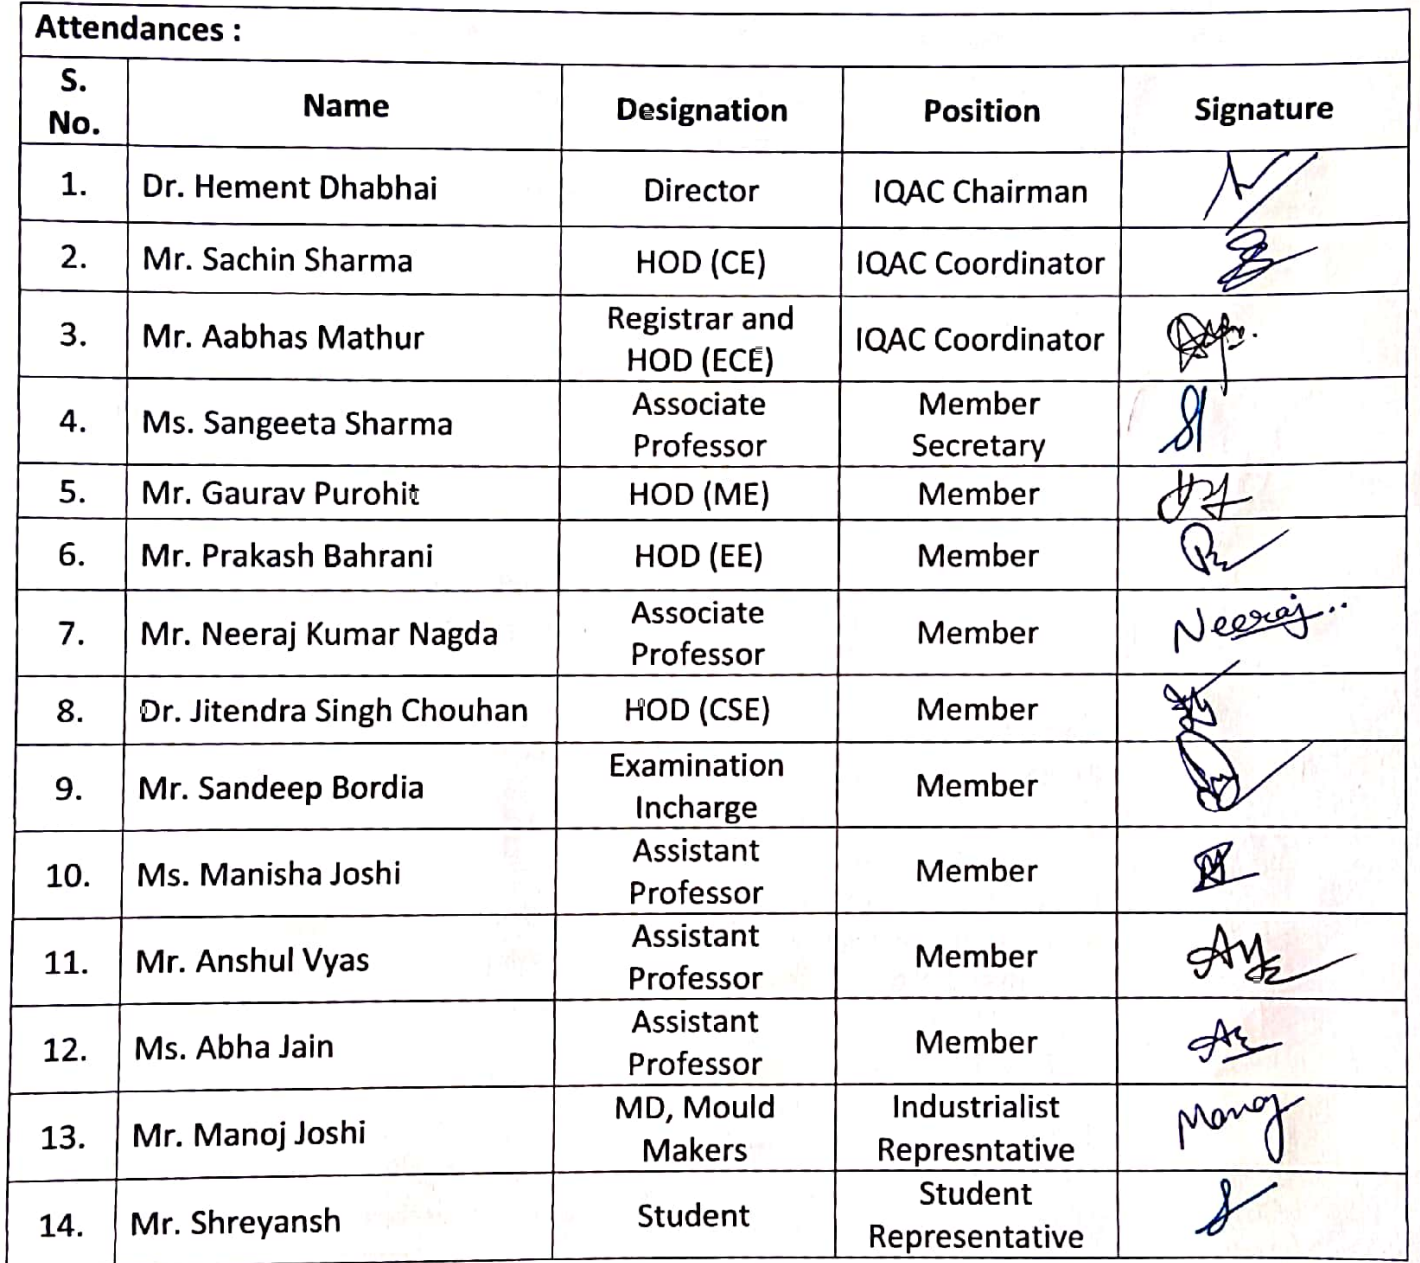 Attendances :
S. No. Name Designation Position Signature
1. Dr. Hement Dhabhai Director IQAC Chairman
2. Mr. Sachin Sharma HOD (CE) IQAC Coordinator
3. Mr. Aabhas Mathur Registrar and HOD (ECE) IQAC Coordinator
4. Ms. Sangeeta Sharma Associate Professor Member Secretary
5. Mr. Gaurav Purohit HOD (ME) Member
6. Mr. Prakash Bahrani HOD (EE) Member
7. Mr. Neeraj Kumar Nagda Associate Professor Member Neeraj..
8. Dr. Jitendra Singh Chouhan HOD (CSE) Member
9. Mr. Sandeep Bordia Examination Incharge Member
10. Ms. Manisha Joshi Assistant Professor Member
11. Mr. Anshul Vyas Assistant Professor Member
12. Ms. Abha Jain Assistant Professor Member
13. Mr. Manoj Joshi MD, Mould Makers Industrialist Represntative Manoj
14. Mr. Shreyansh Student Student Representative